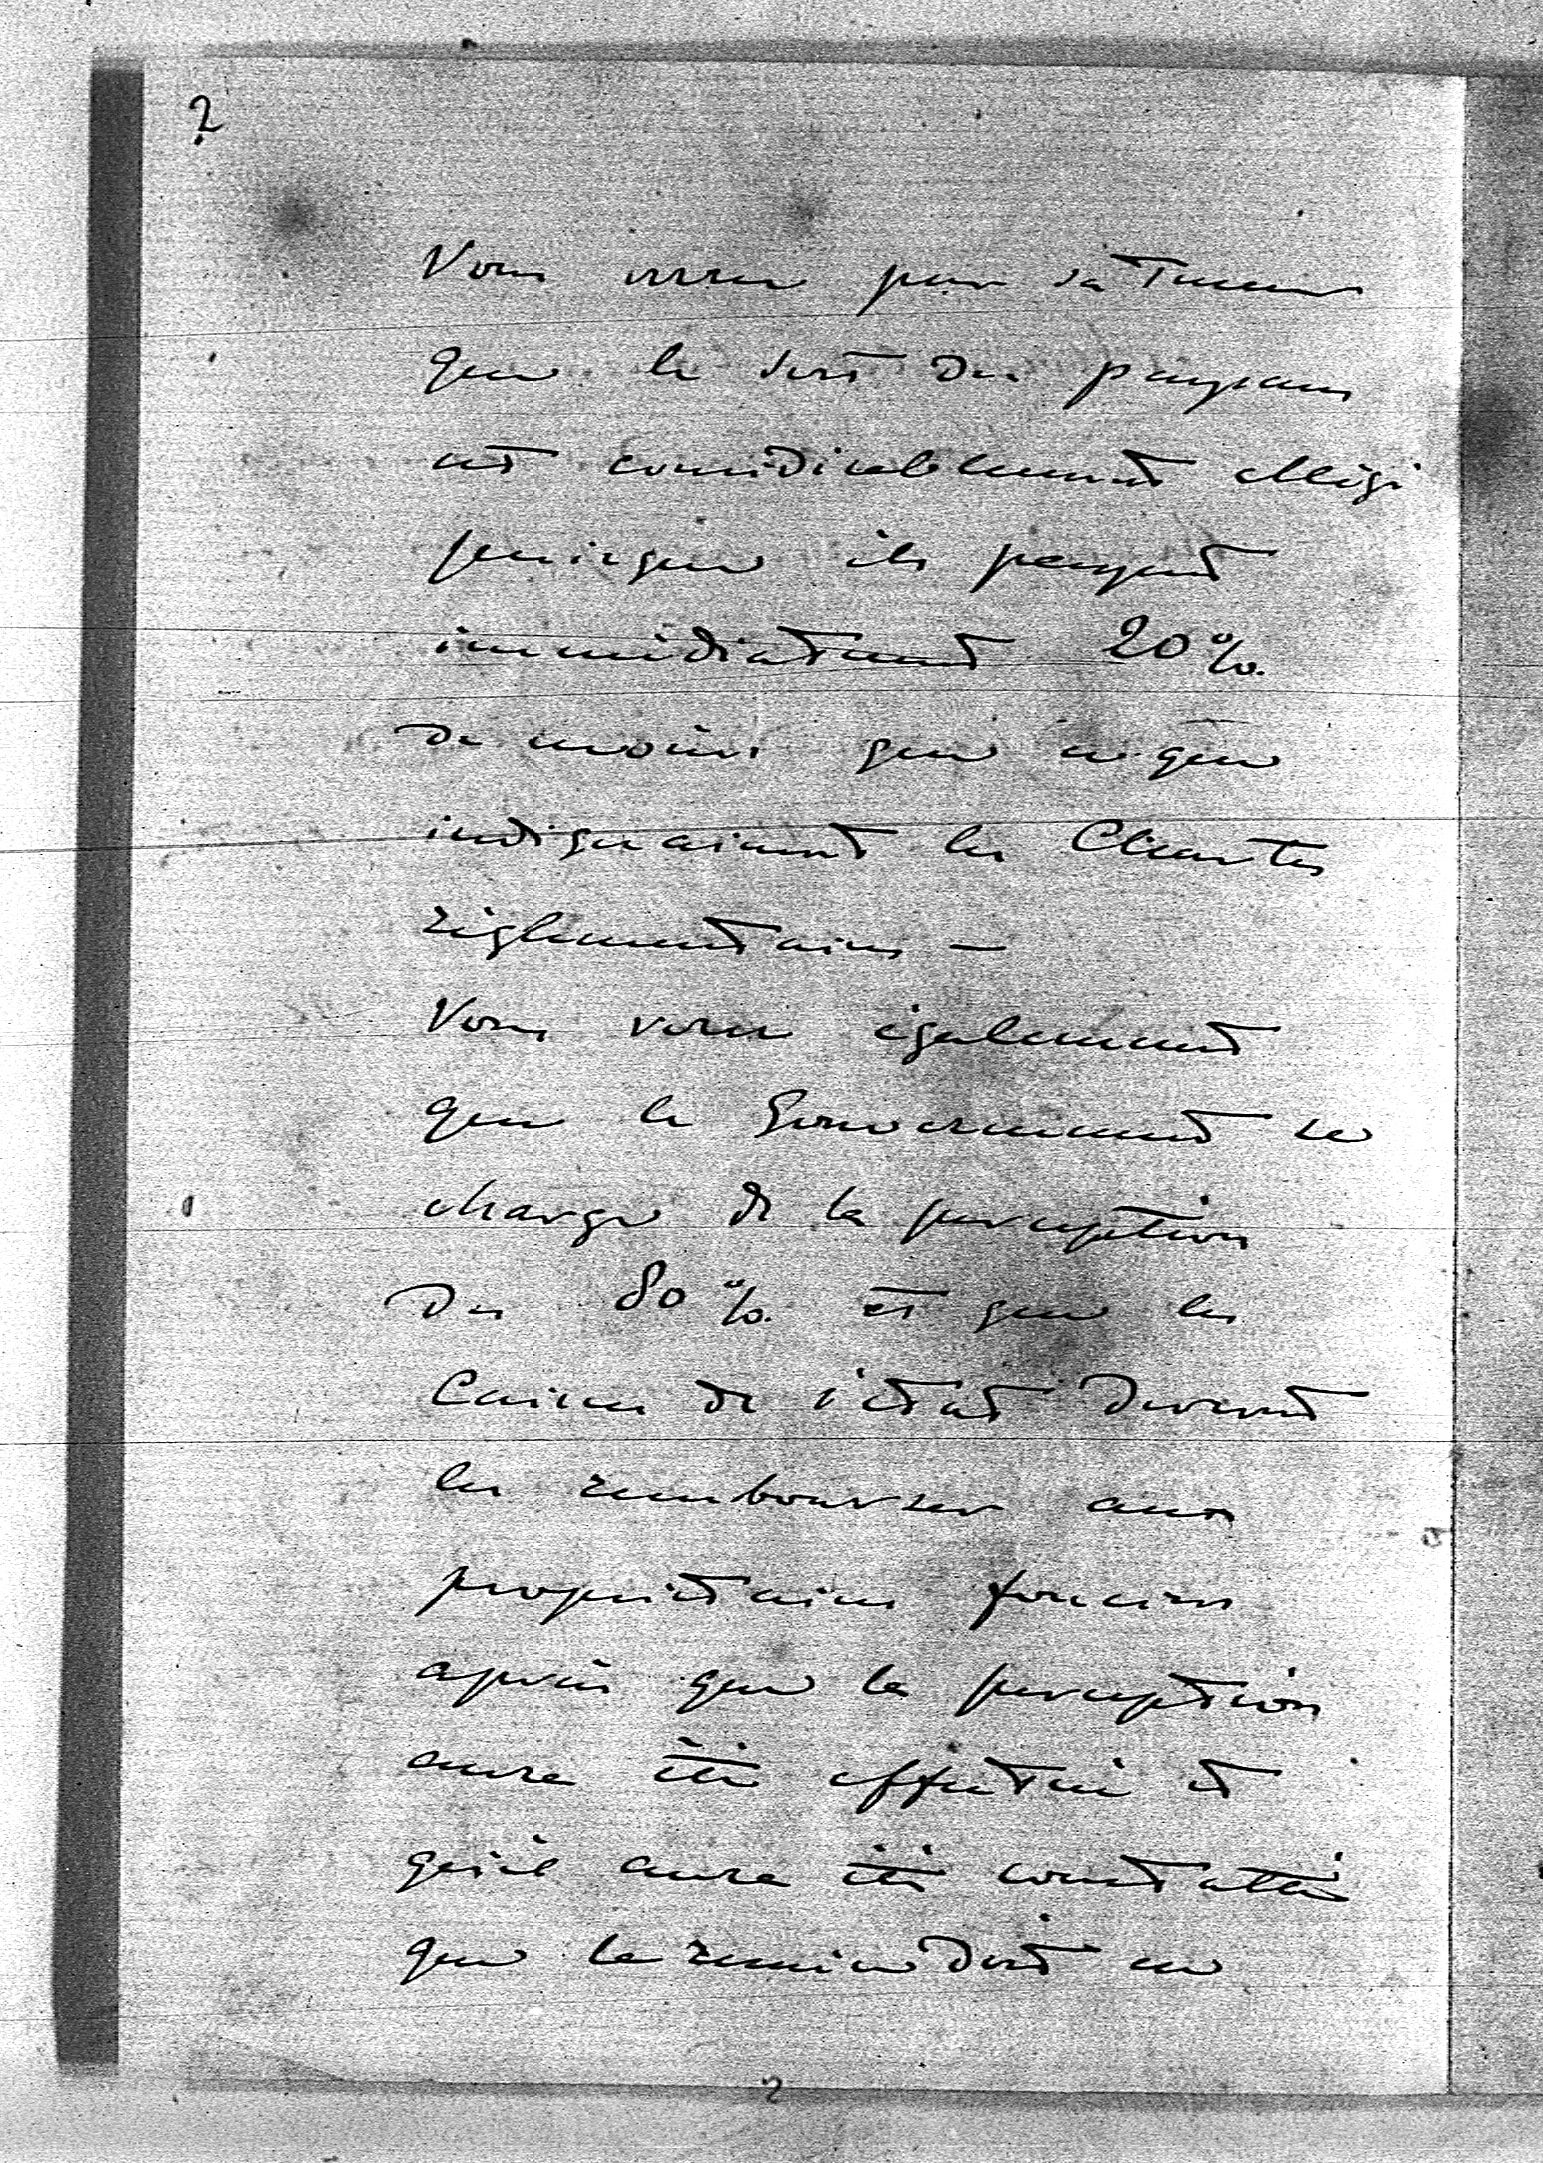 2
Vous verrez par sa teneur
que le sort des paysans
est considérablement allégé
puisque ils payent
immédiatement 20%
de moins que ce que
indiquaient les Chartes
réglementaires —
Vous verrez également
que le Gouvernement se
charge de la perception
des 80% et que les
Caisses de l'état devront
les rembourser aux
propriétaires fonciers
après que la perception
aura été effectuée et
qu'il aura été constatté
que la remise dont en
2